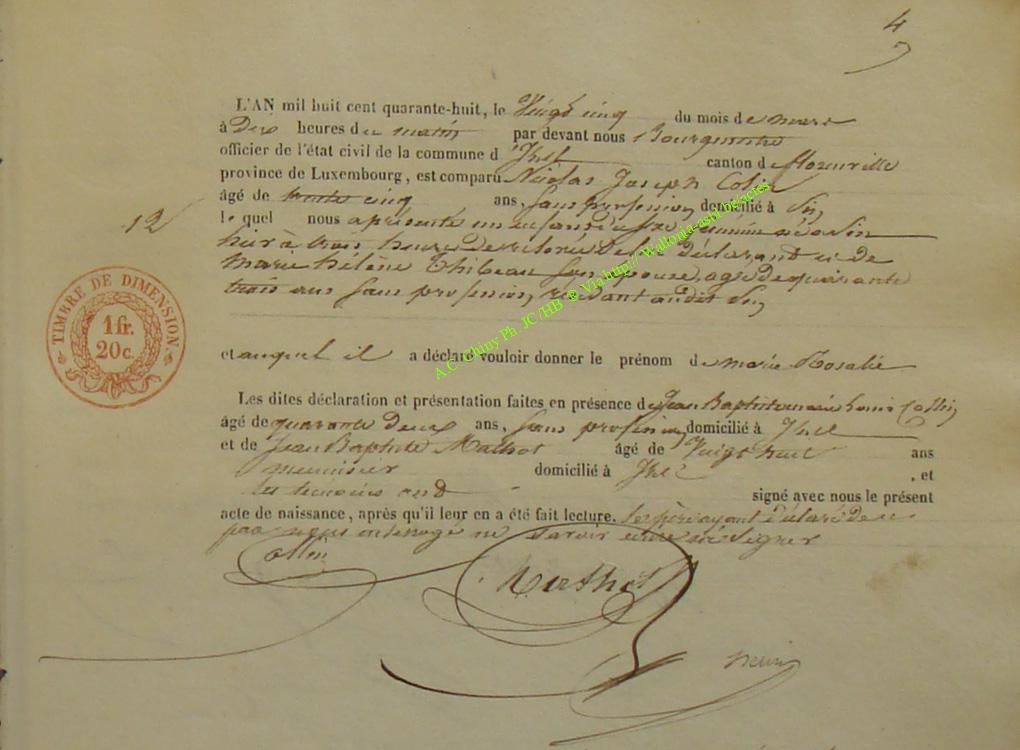 4
L'AN mil huit cent quarante-huit, le Vingt cinq du mois de mars
à Dix heures du matin par devant nous Bourgmestre
officier de l'état civil de la commune d'Izel canton de florenville
province de Luxembourg, est comparu Nicolas Joseph Colin
âgé de trente cinq ans, sans profession domicilié à Pin
le quel nous a présenté un enfant de sexe féminin né à Pin
hier à trois heure de relevée De lui déclarand et de
Marie Hélène Thibeau son épouse, agé de quarante
trois ans sans profession, résidant audit Pin
et auquel il a déclaré vouloir donner le prénom de marie Rosalie
Les dites déclaration et présentation faites en présence de Jean Baptiste Louis Collin
âgé de quarante deux ans, sans profession domicilié à Izel
et de Jean Baptiste Mathot âgé de Vingt huit ans
meunisier domicilié à Izel , et
les temoins ond signé avec nous le présent
acte de naissance, après qu'il leur en a été fait lecture. le père ayant déclaré de
par nous interrogé ne savoir écrire ni signer
Collin
Mathot
12
TIMBRE DE DIMENSION
1 fr.
20 c.
A.C. Chiny Ph. JC /HB ® Via http:// Wallonia-asbl.be/actes